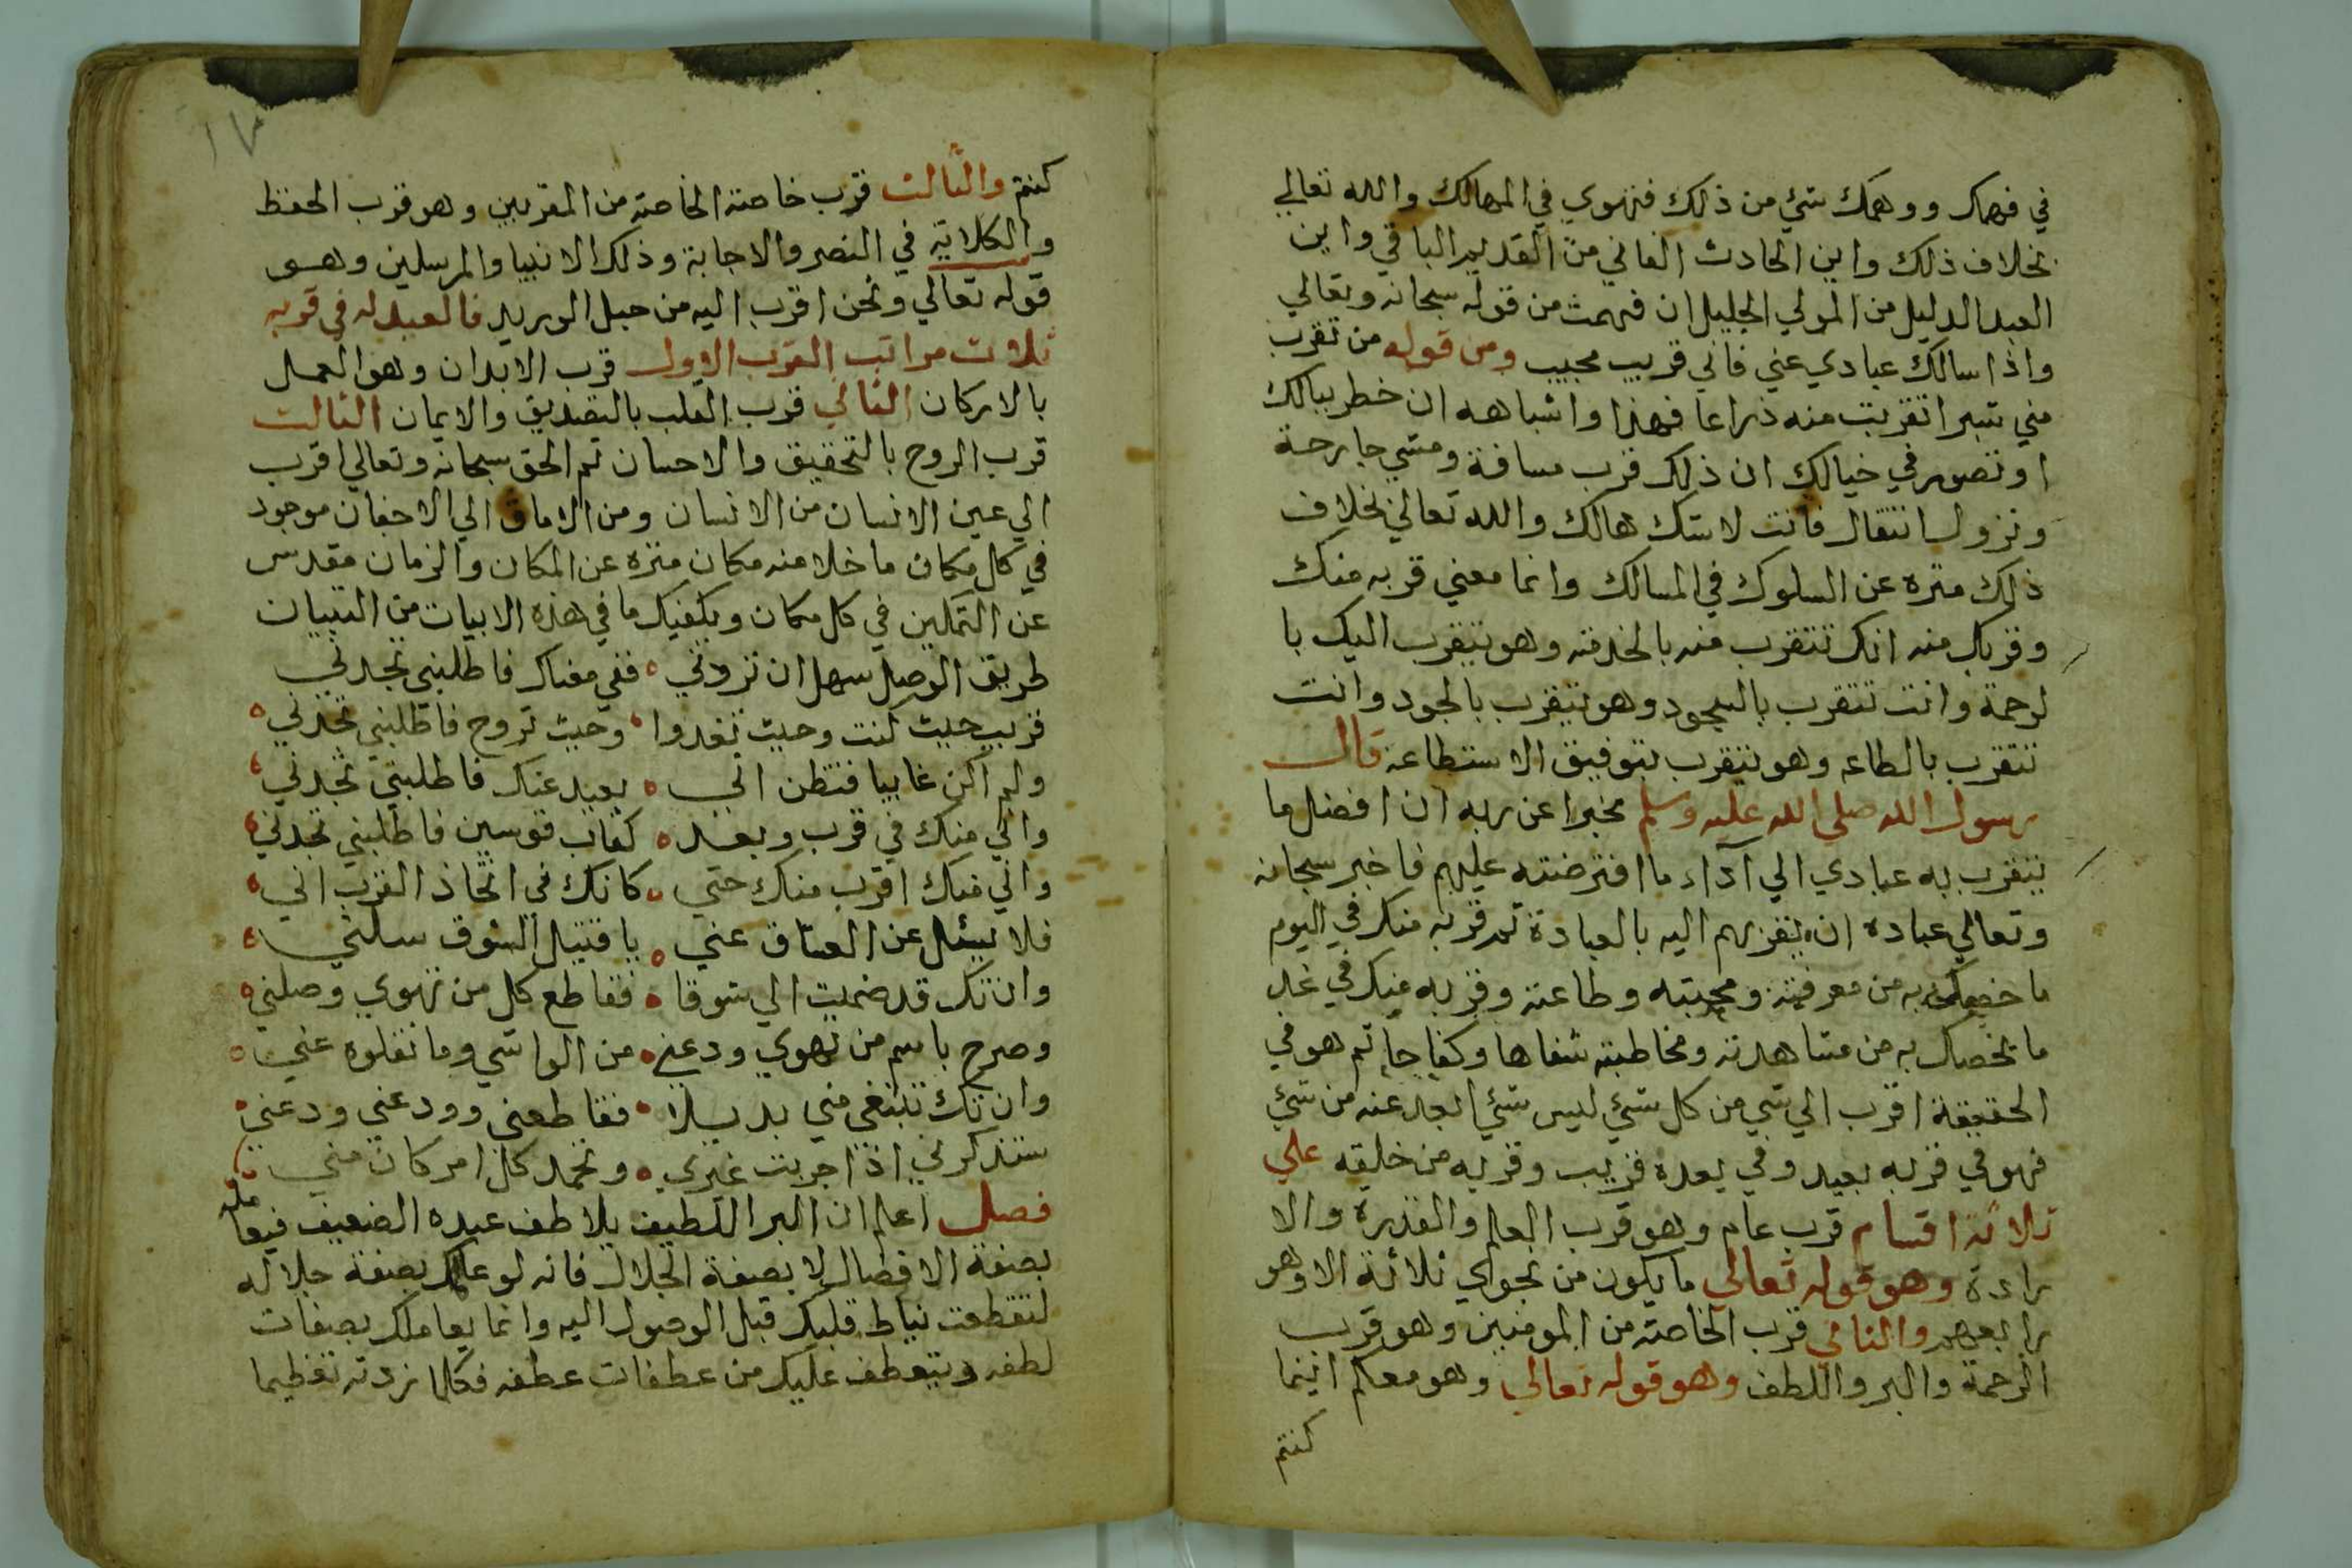 في فهمك ووهمك شئ من ذلك فتهوي في المهالك والله تعالي
بخلاف ذلك واين الحادث الفاني من القديم الباقي واين
العبد الدليل من المولي الجليل ان فهمت من قوله سبحانه وتعالي
واذا سالك عبادي عني فاني قريب مجيب ومن قوله من تقرب
مني شبرا تقربت منه ذراعا فهذا واشباهه ان خطر ببالك
او تصور في خيالك ان ذلك قرب مسافة ومشي جارحة
ونزول انتقال فانت لا شك هالك والله تعالي بخلاف
ذلك منزه عن السلوك في المسالك وانما معني قربه منك
وقربك منه انك تتقرب منه بالخدمة وهو يتقرب اليك با
لرحمة وانت تتقرب بالسجود وهو يتقرب بالجود وانت
تتقرب بالطاعه وهو يتقرب بتوفيق الاستطاعة قال
رسول الله صلي الله عليه وسلم مخبرا عن ربه ان افضل ما
يتقرب به عبادي الي آداء ما افترضته عليهم فاخبر سبحانه
وتعالي عباده ان يقربهم اليه بالعبادة ثم قربه منك في اليوم
ما خصك به من معرفته ومحبته وطاعته وقربه منك في غد
ما يخصك به من مشاهدته ومخاطبته شفاها وكفاحا ثم هو في
الحقيقة اقرب الي شي من كل شئ ليس شئ ابعد عنه من شئ
فهو في قربه بعيد وفي بعده قريب وقربه من خلقه علي
ثلاثة اقسام قرب عام وهو قرب العلم والقدرة والا
رادة وهو قوله تعالي ما يكون من نجوي ثلاثة الا وهو
رابعهم والثاني قرب الخاصة من المومنين وهو قرب
الرحمة والبر واللطف وهو قوله تعالي وهو معكم اينما
كنتم
١٧
كنتم والثالث قرب خاصة الخاصة من المقربين وهو قرب الحفظ
والكلاية في النصر والاجابة وذلك الانبيا والمرسلين وهو
قوله تعالي ونحن اقرب اليه من حبل الوريد فالعبد له في قربه
ثلاث مراتب القرب الاول قرب الابدان وهو العمل
بالاركان الثاني قرب القلب بالتصديق والايمان الثالث
قرب الروح بالتحقيق والاحسان ثم الحق سبحانه وتعالي اقرب
الي عين الانسان من الانسان ومن الاماق الي الاجفان موجود
في كل مكان ما خلا منه مكان منزه عن المكان والزمان مقدس
عن التمكين في كل مكان ويكفيك ما في هذه الابيات من التبيان
طريق الوصل سهل ان تزدني ه ففي مغناك فاطلبني تجدني
قريب حيث كنت وحيث تغدوا ه وحيث تروح فاطلبني تجدني ه
ولم اكن غايبا فتظن اني ه بعيد عنك فاطلبني تجدني
واني منك في قرب وبعد ه كقاب قوسين فاطلبني تجدني
واني منك اقرب منك حتي ه كانك في اتخاذ القرب اني
فلا يسئل عن العشاق عني ه يا قتيل الشوق سلني
وان تك قد ضميت الي شوقا ه فقاطع كل من تهوي وصلني ه
وصرح باسم من تهوي ودعني ه من الواشي وما نقلوه عني ه
وان تك تبتغي مني بديلا ه فقاطعني وودعني ودعني
ستذكرني اذا جربت غيري ه وتحمد كل امر كان مني
فصل اعلم ان البر اللطيف يلاطف عبده الضعيف فيعامله
بصفة الافضال لا بصفة الجلال فانه لو عاملك بصفة جلاله
لتقطعت نياط قلبك قبل الوصول اليه وانما يعاملك بصفات
لطفه ويتعطف عليك من عطفات عطفه فكلما زدته تعظيما